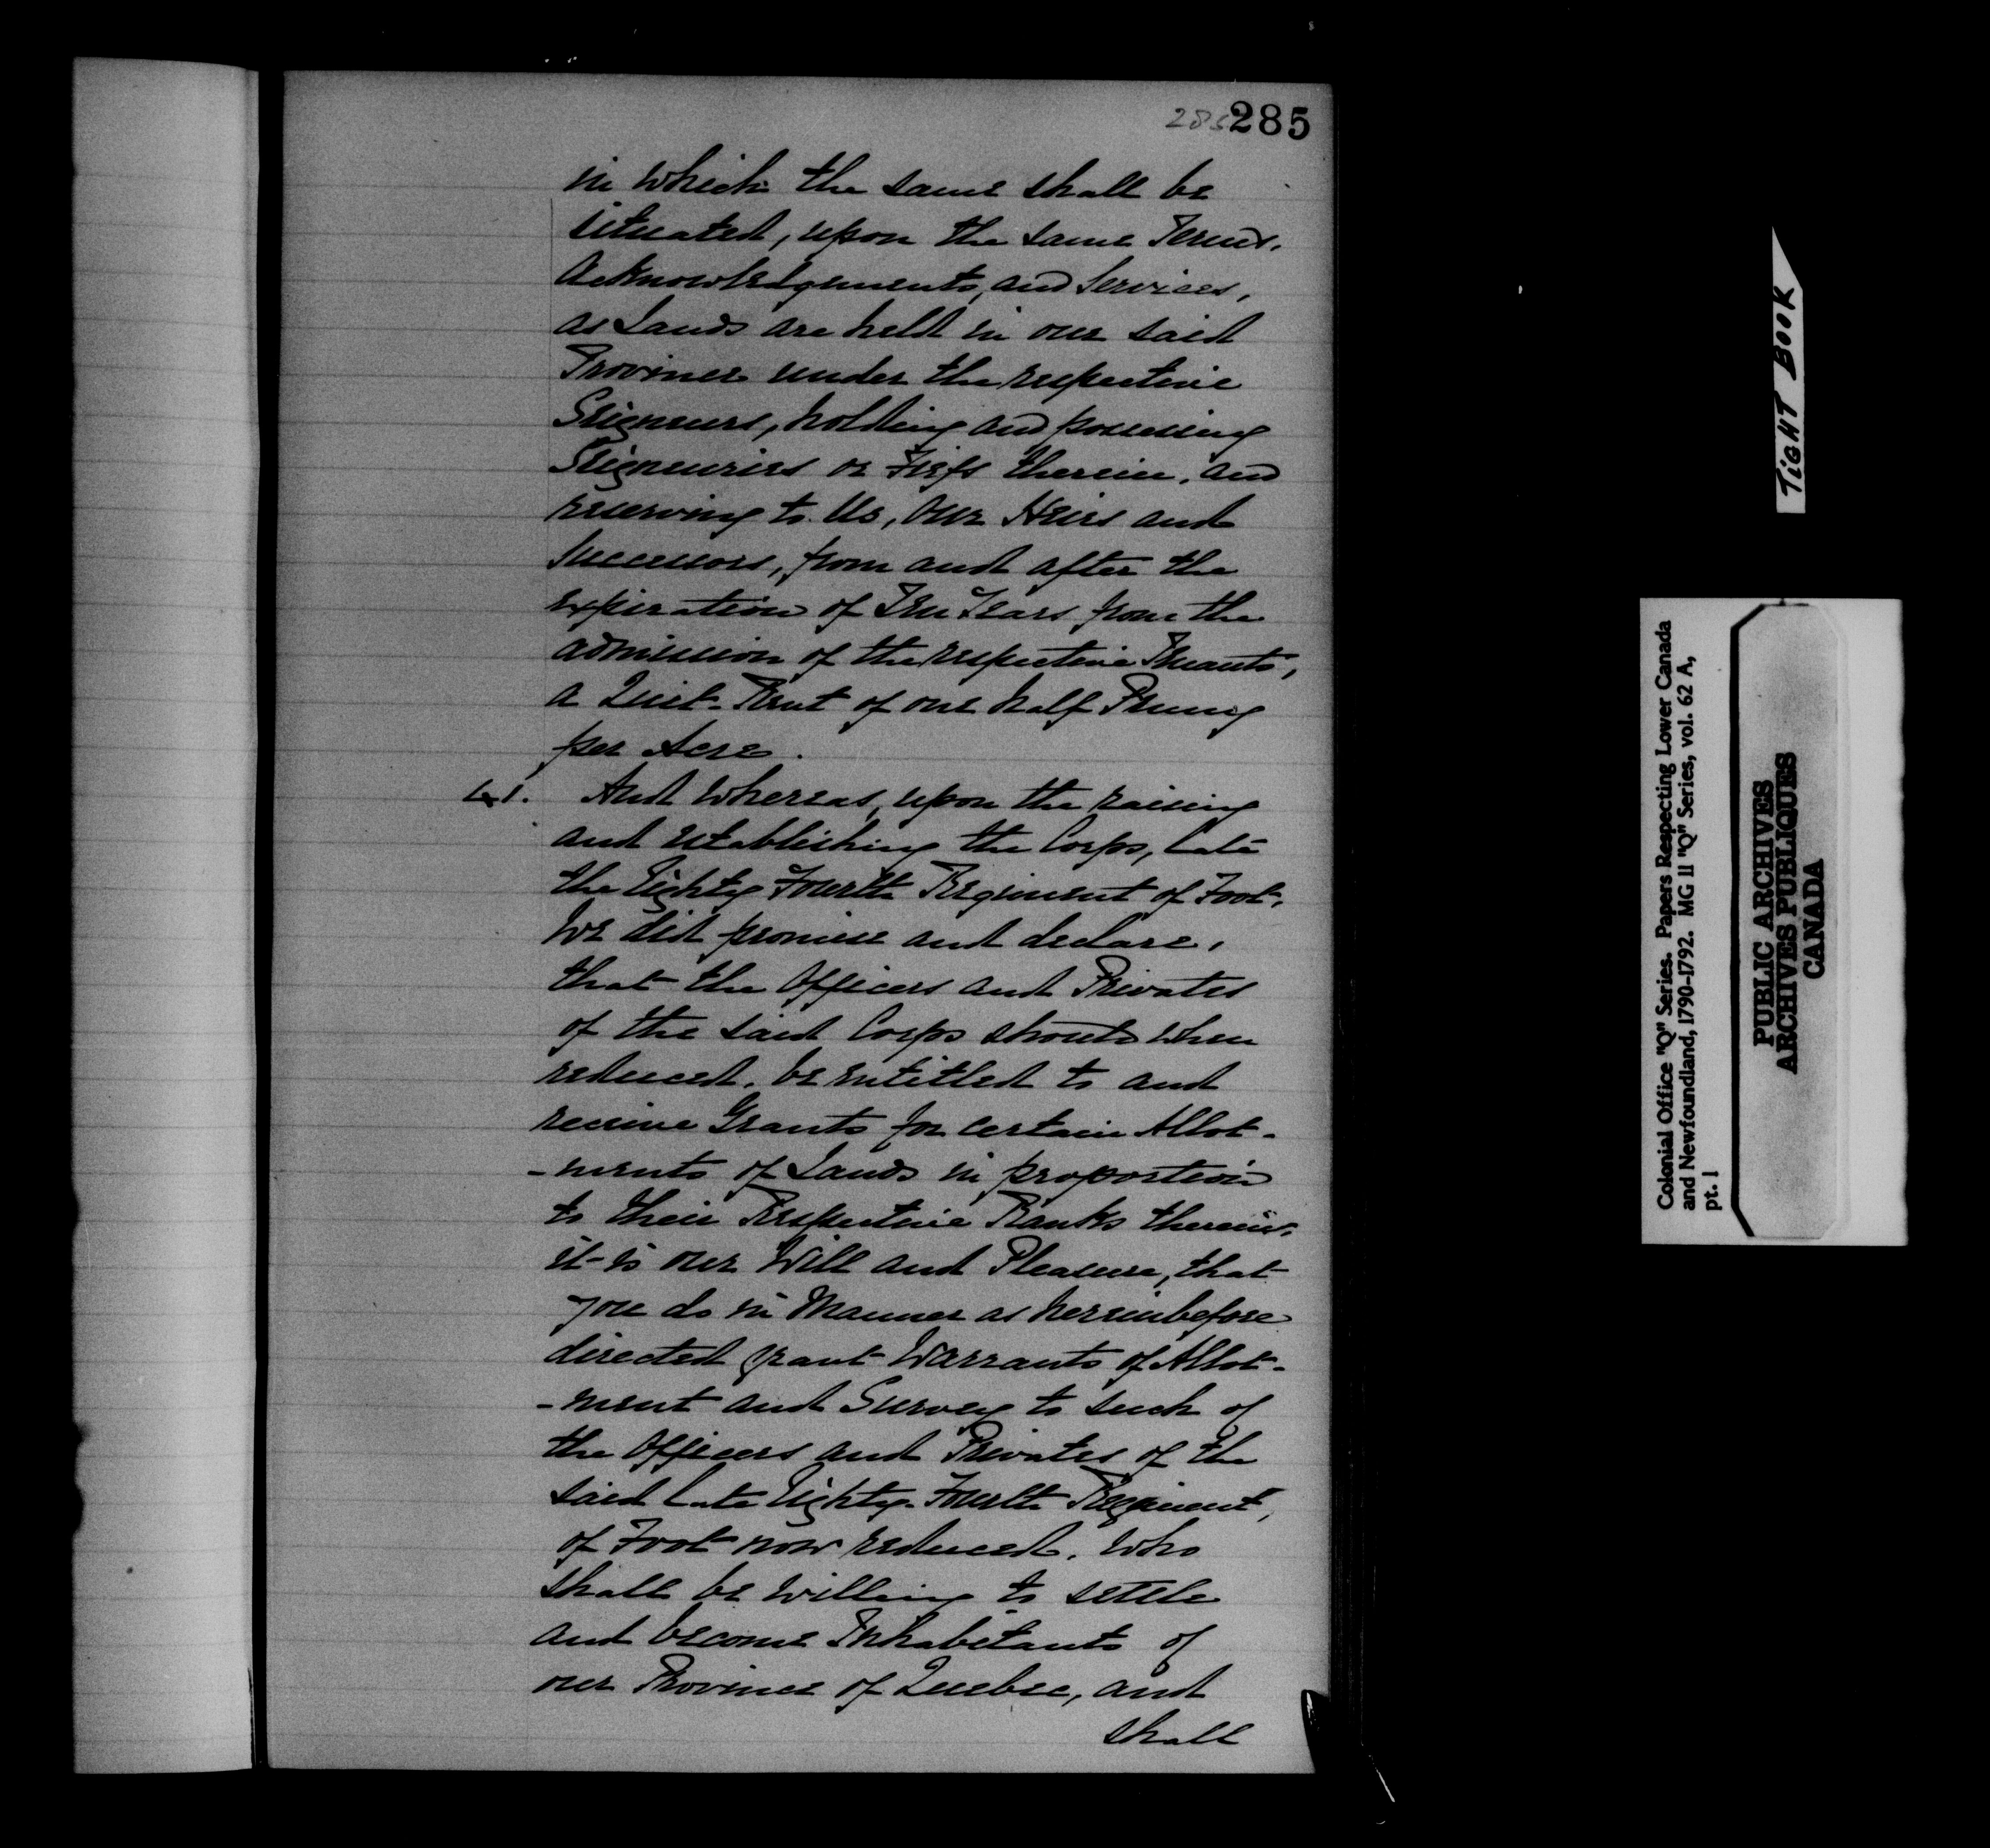 285 285
in which the same shall be
situated, upon the same Terms.
Acknowledgements, and Services,
as Lands are held in our said
Province under the respective
Seigneurs, holding and possessing
Seigneuries or Fiefs therein, and
reserving to Us, Our Heirs and
Successors, from and after the
expiration of Ten Years from the
admission of the respective Tenants,
a Quit-Rent of one half Penny
per Acre.
41. And whereas, upon the raising
and establishing the Corps, late
the Eighty Fourth Regiment of Foot,
We did promise and declare,
that the Officers and Privates
of the said Corps should when
reduced. be entitled to and
receive Grants for certain Allot-
-ments of Lands in proportion
to their Respective Ranks therein,
it is our Will and Pleasure, that
you do in Manner as hereinbefore
directed grant Warrants of Allot-
-ment and Survey to such of
the Officers and Privates of the
said late Eighty-Fourth Regiment,
of Foot now reduced. who
shall be willing to settle
and become Inhabitants of
our Province of Quebec, and
shall
TIGHT BOOK
Colonial Office "Q" Series. Papers Respecting Lower Canada
and Newfoundland, 1790-1792. MG 11 "Q" Series, vol. 62 A,
pt. 1
PUBLIC ARCHIVES
ARCHIVES PUBLIQUES
CANADA